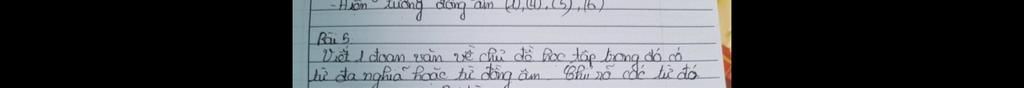 - Hiện tượng đồng âm (1), (4), (5), (6)
Bài 5
Viết 1 đoạn văn về chủ đề học tập trong đó có
từ đa nghĩa hoặc từ đồng âm. Ghi rõ các từ đó